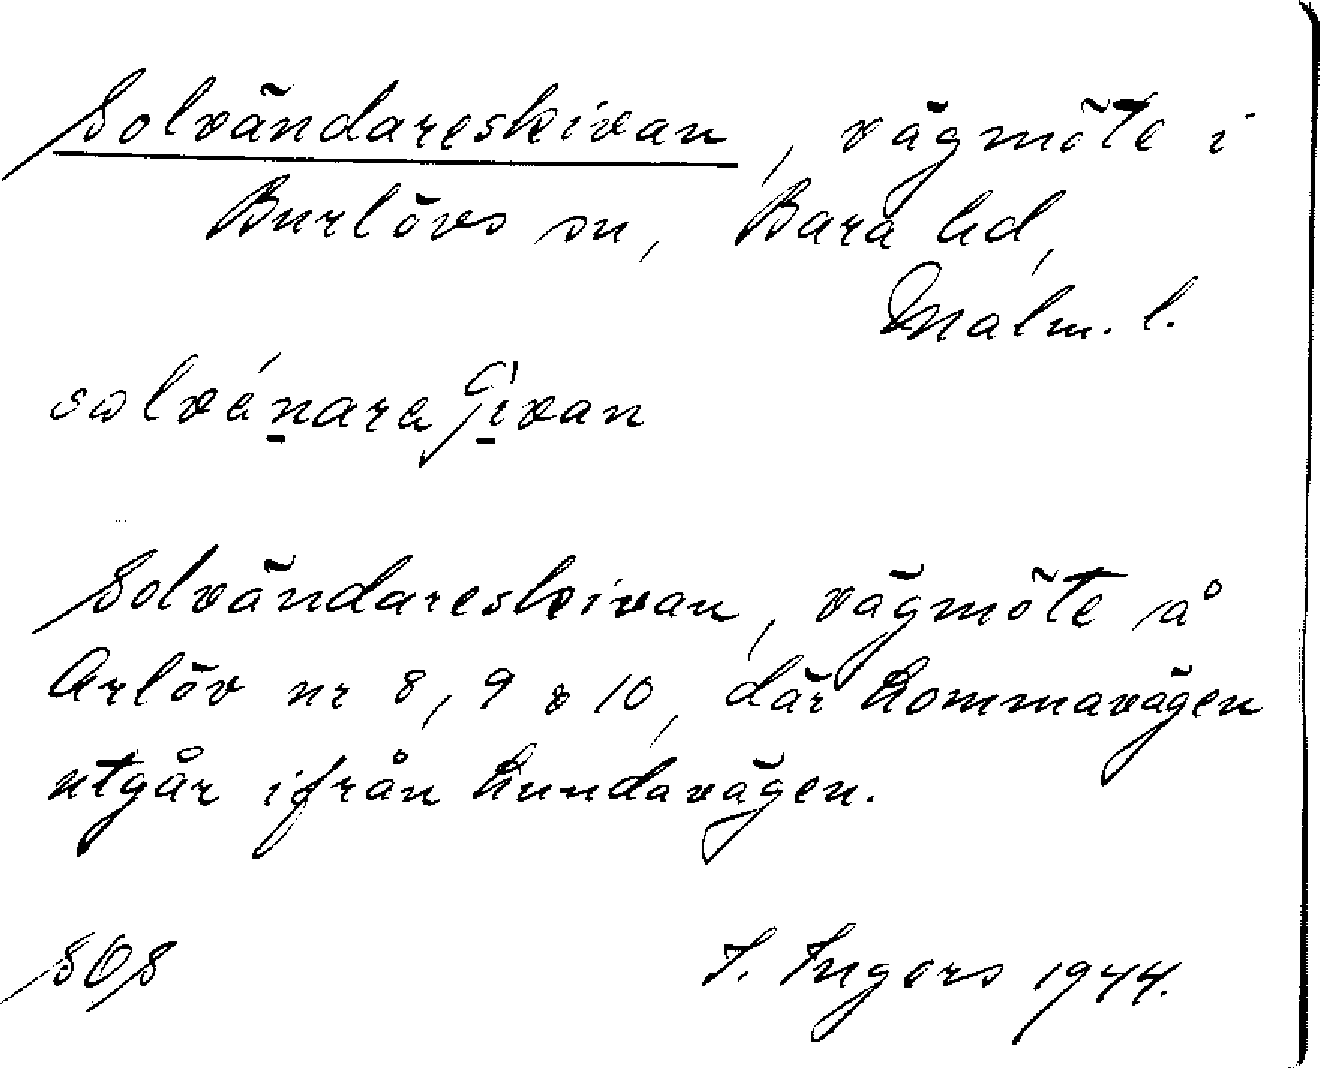 Solvändareskivan, vägmöte i
Burlövs sn, Bara hd,
Malm. l.
Solvändareskivan, vägmöte å
Arlöv nr 8, 9 & 10, där Lommavägen
utgår ifrån Lundavägen.
SOS I. Ingers 1944.